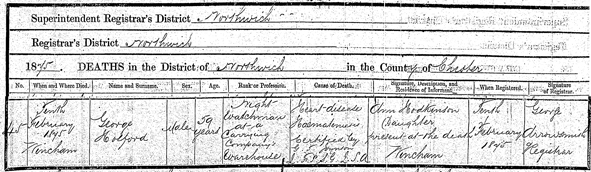 Superintendent Registrar's District Northwich
Registrar's District Northwich
1875. DEATHS in the District of Northwich in the County of Chester
No. When and Where Died. Name and Surname. Sex. Age. Rank or Profession. Cause of Death. Signature, Description, and Residence of Informant. When Registered. Signature of Registrar.
45
Tenth
February
1875
Wincham
George
Holford
Male
59
years
Night
Watchman
at a
Carrying
Company's
Warehouse
Heart disease
Haematemesis
Certified by
Ann Hodkinson
Daughter
present at the death
Wincham
Tenth
February
1875
George
Arrowsmith
Registrar